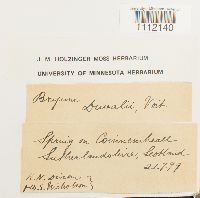 1112140
J. M. HOLZINGER MOSS HERBARIUM
UNIVERSITY OF MINNESOTA HERBARIUM
Bryum Duvalii, Voit.
Spring on
Sutherlandshire, Scotland
H. N. Dixon
W. E. Nicholson